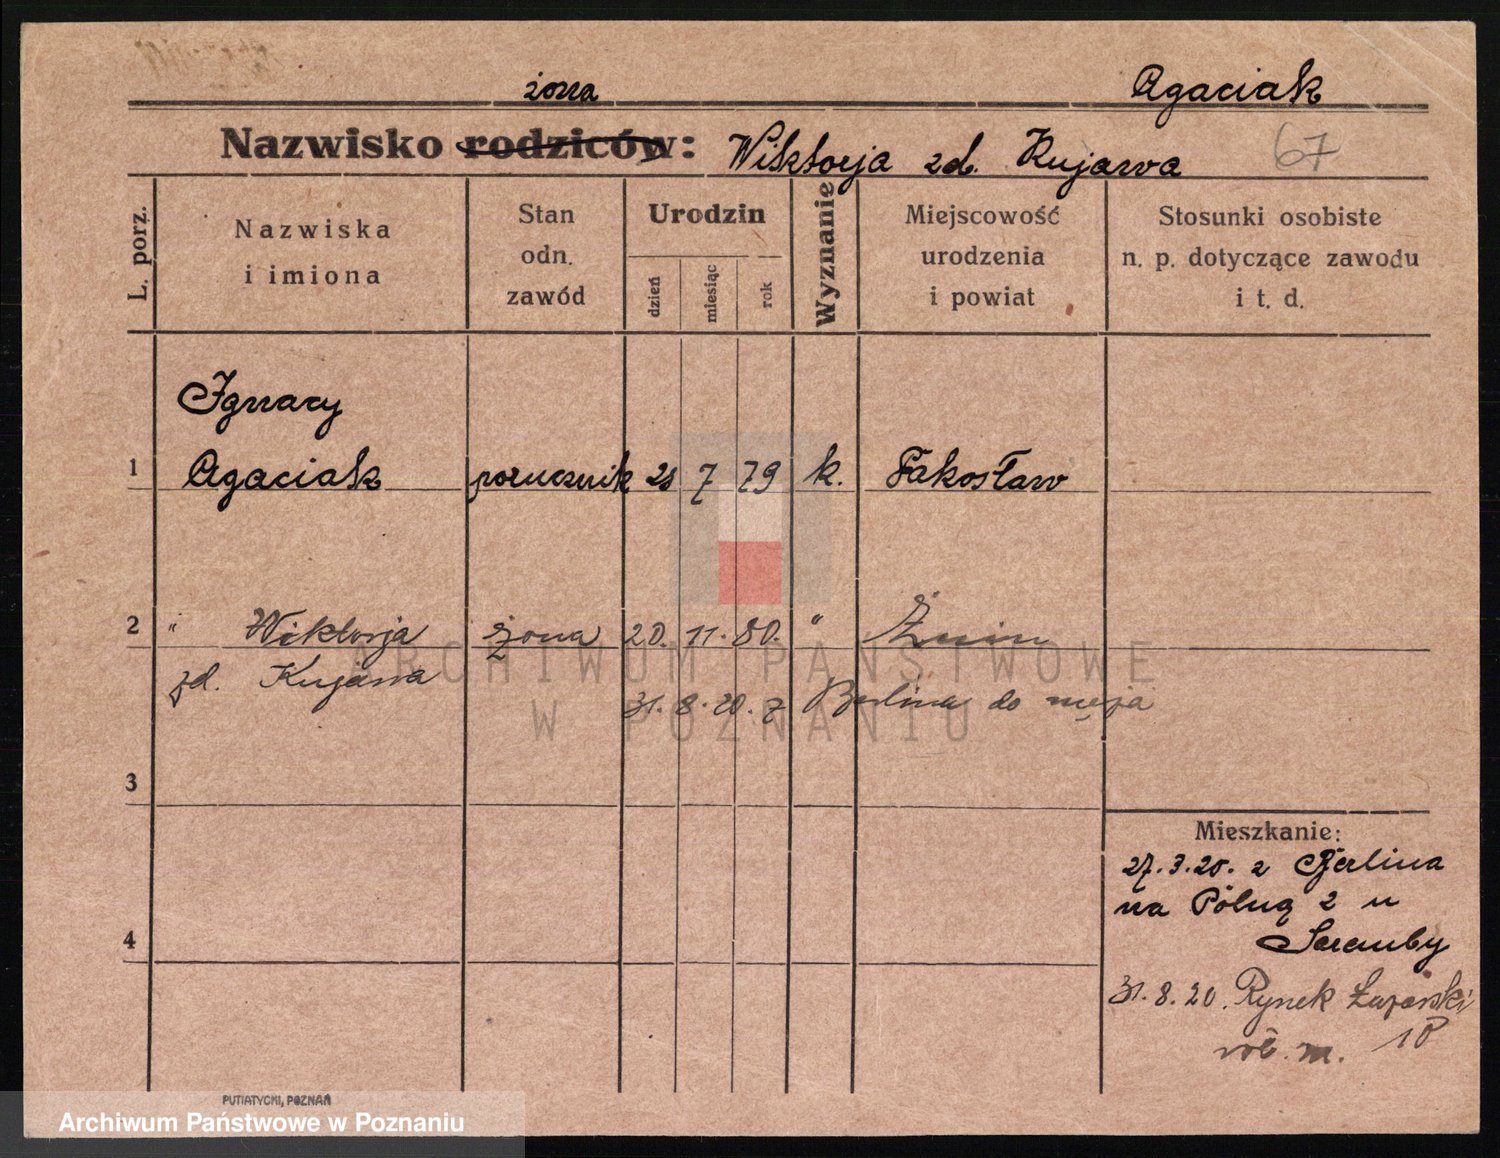 żona Agaciak
Nazwisko rodziców: Wiktorja zd. Kujawa 67
L. porz.
Nazwiska
i imiona
Stan
odn.
zawód
Urodzin
dzień
miesiąc
rok
Wyznanie
Miejscowość
urodzenia
i powiat
Stosunki osobiste
n. p. dotyczące zawodu
i t. d.
Ignacy
1 Agaciak porucznik 7 79 k. Fakosław
2 " Wiktorja żona 20. 11. 80. " Żnin
zd. Kujawa
31. 8. 20. z Berlina do męża
3
4
Mieszkanie:
27.3.20. z Berlina
na Pólną 2 u
31.8.20. Rynek Łazarski
m.
PUTIATYCKI, POZNAŃ
ARCHIWUM PAŃSTWOWE
W POZNANIU
Archiwum Państwowe w Poznaniu